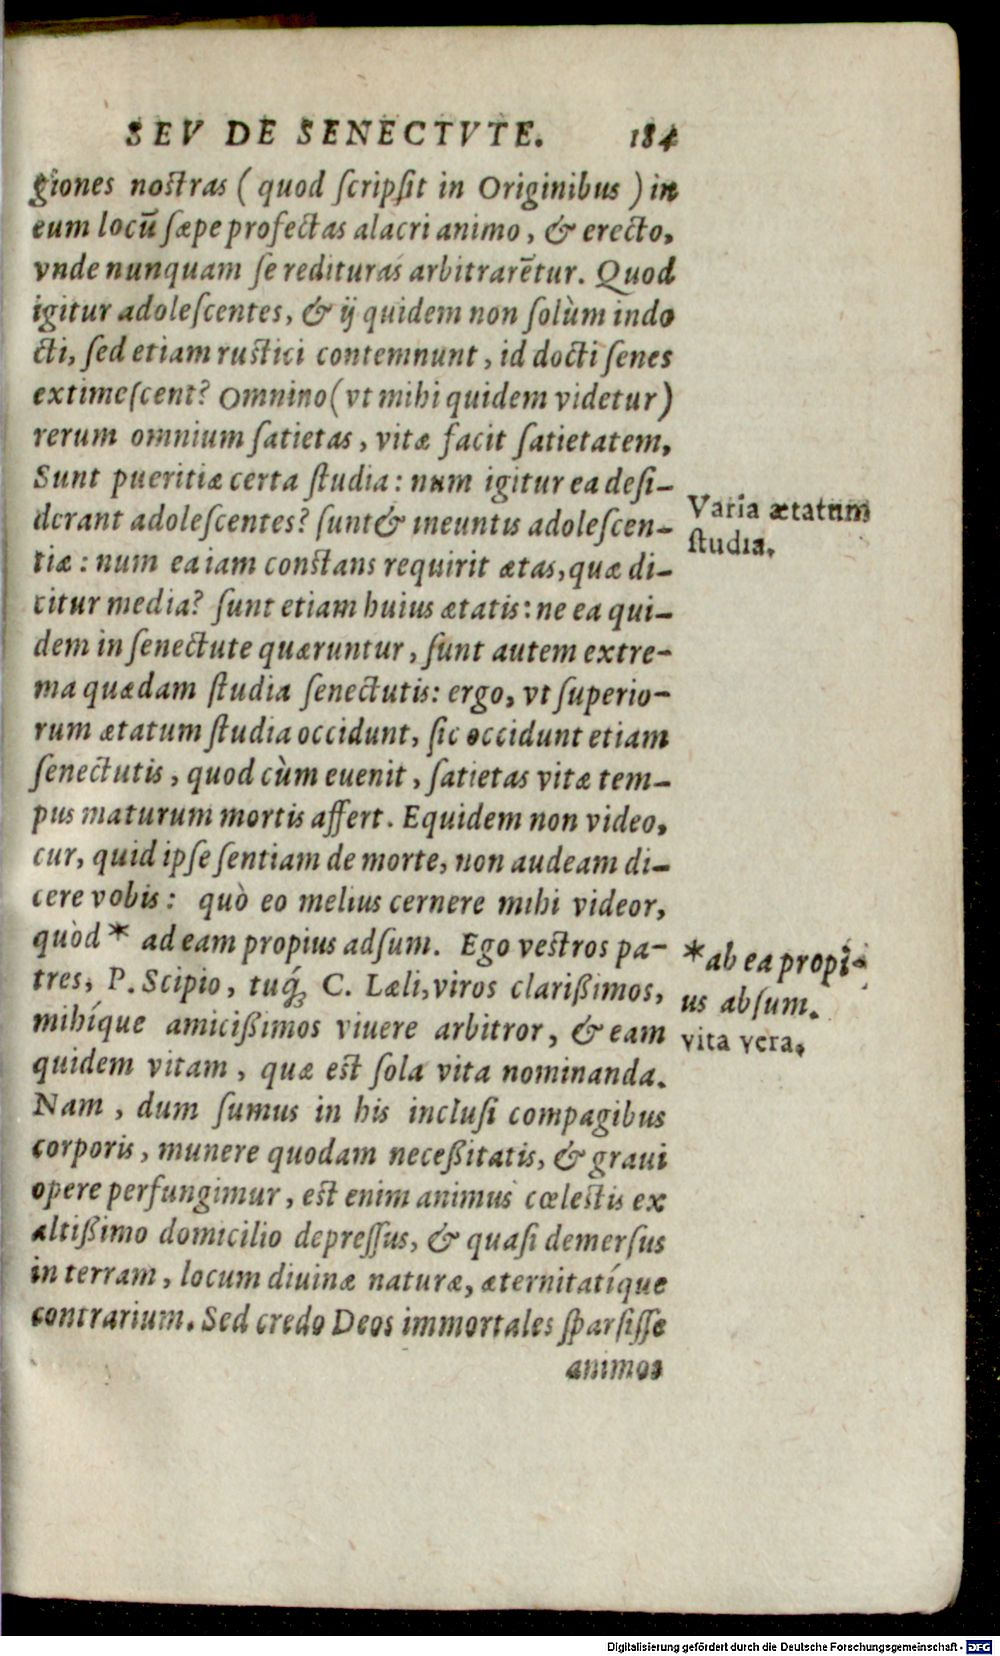 SEV DE SENECTVTE. 184
giones nostras ( quod scripsit in Originibus ) in
eum locū sæpe profectas alacri animo, & erecto,
vnde nunquam se redituras arbitrarētur. Quod
igitur adolescentes, & ij quidem non solùm indo
cti, sed etiam rustici contemnunt, id docti senes
extimescent? Omnino (vt mihi quidem videtur)
rerum omnium satietas, vitæ facit satietatem,
Sunt pueritiæ certa studia: num igitur ea desi-
derant adolescentes? sunt & ineuntis adolescen-
tiæ: num ea iam constans requirit ætas, quæ di-
citur media? sunt etiam huius ætatis: ne ea qui-
dem in senectute quæruntur, sunt autem extre-
ma quædam studia senectutis: ergo, vt superio-
rum ætatum studia occidunt, sic occidunt etiam
senectutis, quod cùm euenit, satietas vitæ tem-
pus maturum mortis affert. Equidem non video,
cur, quid ipse sentiam de morte, non audeam di-
cere vobis: quò eo melius cernere mihi videor,
quòd * ad eam propius adsum. Ego vestros pa-
tres, P. Scipio, tuq́; C. Læli, viros clarißimos,
mihíque amicißimos viuere arbitror, & eam
quidem vitam, quæ est sola vita nominanda.
Nam, dum sumus in his inclusi compagibus
corporis, munere quodam neceßitatis, & graui
opere perfungimur, est enim animus cœlestis ex
altißimo domicilio depressus, & quasi demersus
in terram, locum diuinæ naturæ, æternitatíque
contrarium. Sed credo Deos immortales sparsisse
animos
Varia ætatum
studia.
*ab ea propi-
us absum.
vita vera.
Digitalisierung gefördert durch die Deutsche Forschungsgemeinschaft - DFG